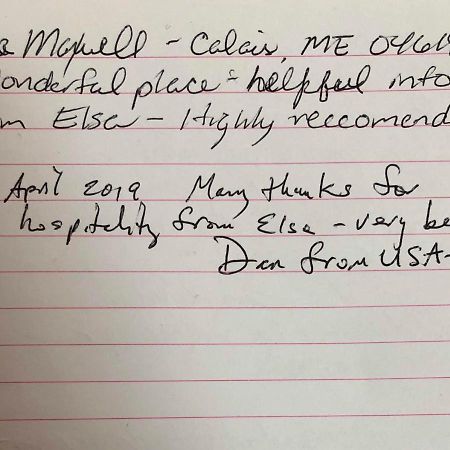 Maxwell - Calais, ME 0461
onderful place - helpful info
m Elsa - Highly reccomend
April 2019 Many thanks for
hospitality from Elsa - very be
Dan from USA-